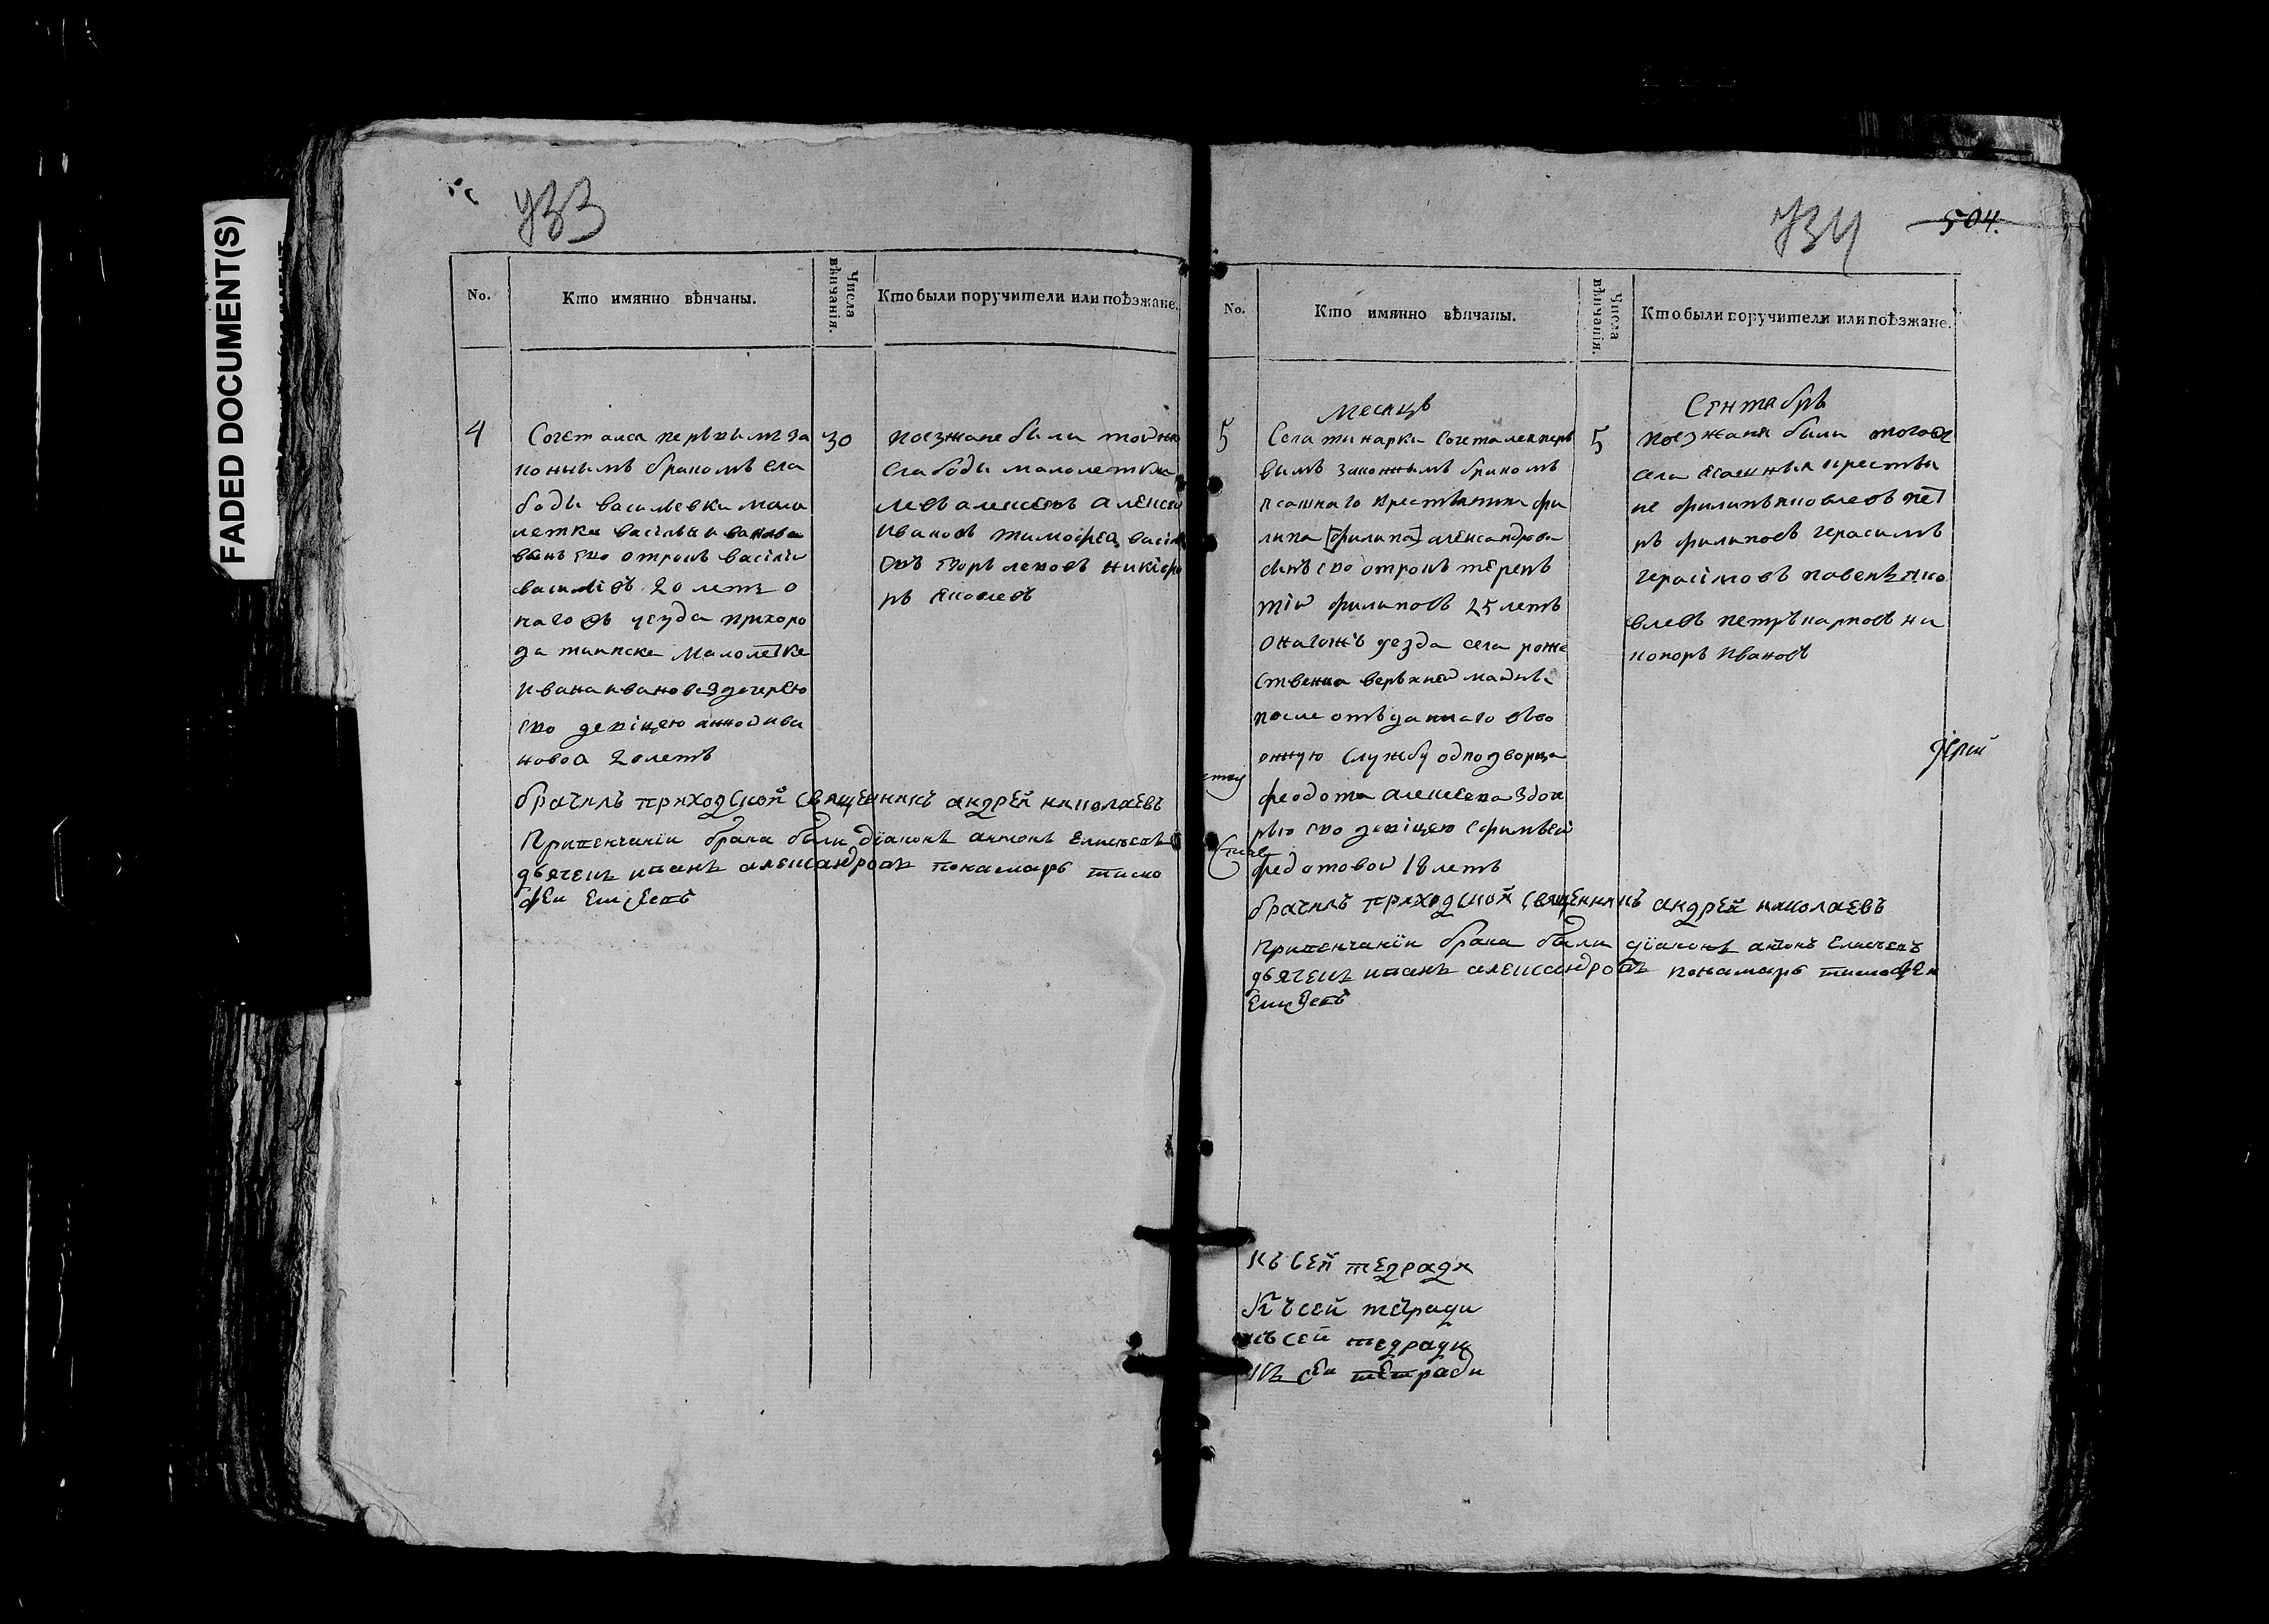 FADED DOCUMENT(S)
733
No.
Кто имянно вѣнчаны.
Числа вѣнчанія.
Кто были поручители или поѣзжане.
4
Сочеталса первымъ за
30
коннымъ бракомъ сла
боды васильевки мало
летка василья иванова
сынъ ево отрокъ василiи
васильiвъ 20 летъ о
наго въ уезда
малолетке
ивана иванова здочерью
ево девiцею анной ива
новоа 20 летъ
поезжане были тойжъ
слабоды малолетки
левъ алексеевъ алексей
ивановъ тимофеа васил
евъ егоръ леповъ никiфо
ръ яковлевъ
брачилъ приходской священникъ андрей николаевъ
Привенчанiи брака были дiаконъ антонъ Елисеевъ
дьячекъ иванъ александровъ понамарь тимо
феи
734
504.
No.
Кто имянно вѣнчаны.
Числа вѣнчанія.
Кто были поручители или поѣзжане.
месецъ
Сентабрь
5
Села тинарки сочеталса перъ
5
вымъ законнымъ бракомъ
ясашнаго крестьянина фи
липа [филипа] александрова
сынъ ево отрокъ терен
тiи филиповъ 25 летъ
онагожъ уезда села роже
ствена верхней маины
после отъданнаго въво
енную службу однодворца
феодота алексеева здоч
рью ево девiцею ефимьей
федотовой 18 летъ
поезжаня были тогожъ
села ясашныя крестья
не филипъ яковлевъ пет
ръ филиповъ герасимъ
герасiмовъ павелъ яко
влевъ петръ карповъ ни
коноръ ивановъ
Iерей
брачилъ приходской священникъ андрей николаевъ
Привенчанiи брака были дiаконъ антонъ Елисеевъ
дьячекъ иванъ александровъ понамарь тимофеи
къ сей тедради
Къ сей тетради
къ сей тедради
Къ сеи тетради